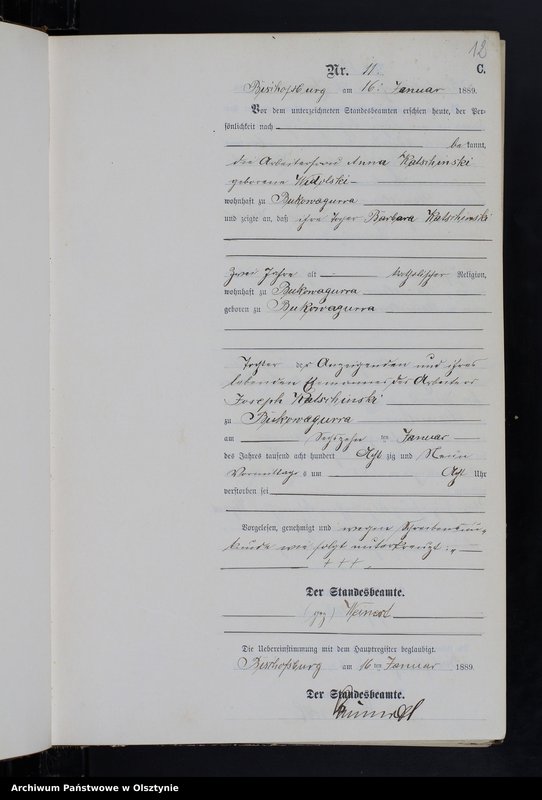 12
Nr. 11. C.
Bischofsburg am 16. Januar 1889.
Vor dem unterzeichneten Standesbeamten erschien heute, der Per-
sönlichkeit nach
bekannt,
die Arbeiterfrau Anna
geborene
wohnhaft zu Bukowagurra
und zeigte an, daß ihre Tochter Barbara
Zwei Jahre alt katholischer Religion,
wohnhaft zu Bukowagurra
geboren zu Bukowagurra
Tochter der Anzeigenden und ihres
lebenden Ehemannes des Arbeiters
Joseph
zu Bukowagurra
am Sechzehn ten Januar
des Jahres tausend acht hundert Acht zig und Neun
Vormittags um Acht Uhr
verstorben sei
Vorgelesen, genehmigt und wegen Schreibensun-
kunde wie folgt unterkreuzt:
+++
Der Standesbeamte.
(gez)
Die Uebereinstimmung mit dem Hauptregister beglaubigt.
Bischofsburg am 16 ten Januar 1889.
Der Standesbeamte.
Archiwum Państwowe w Olsztynie